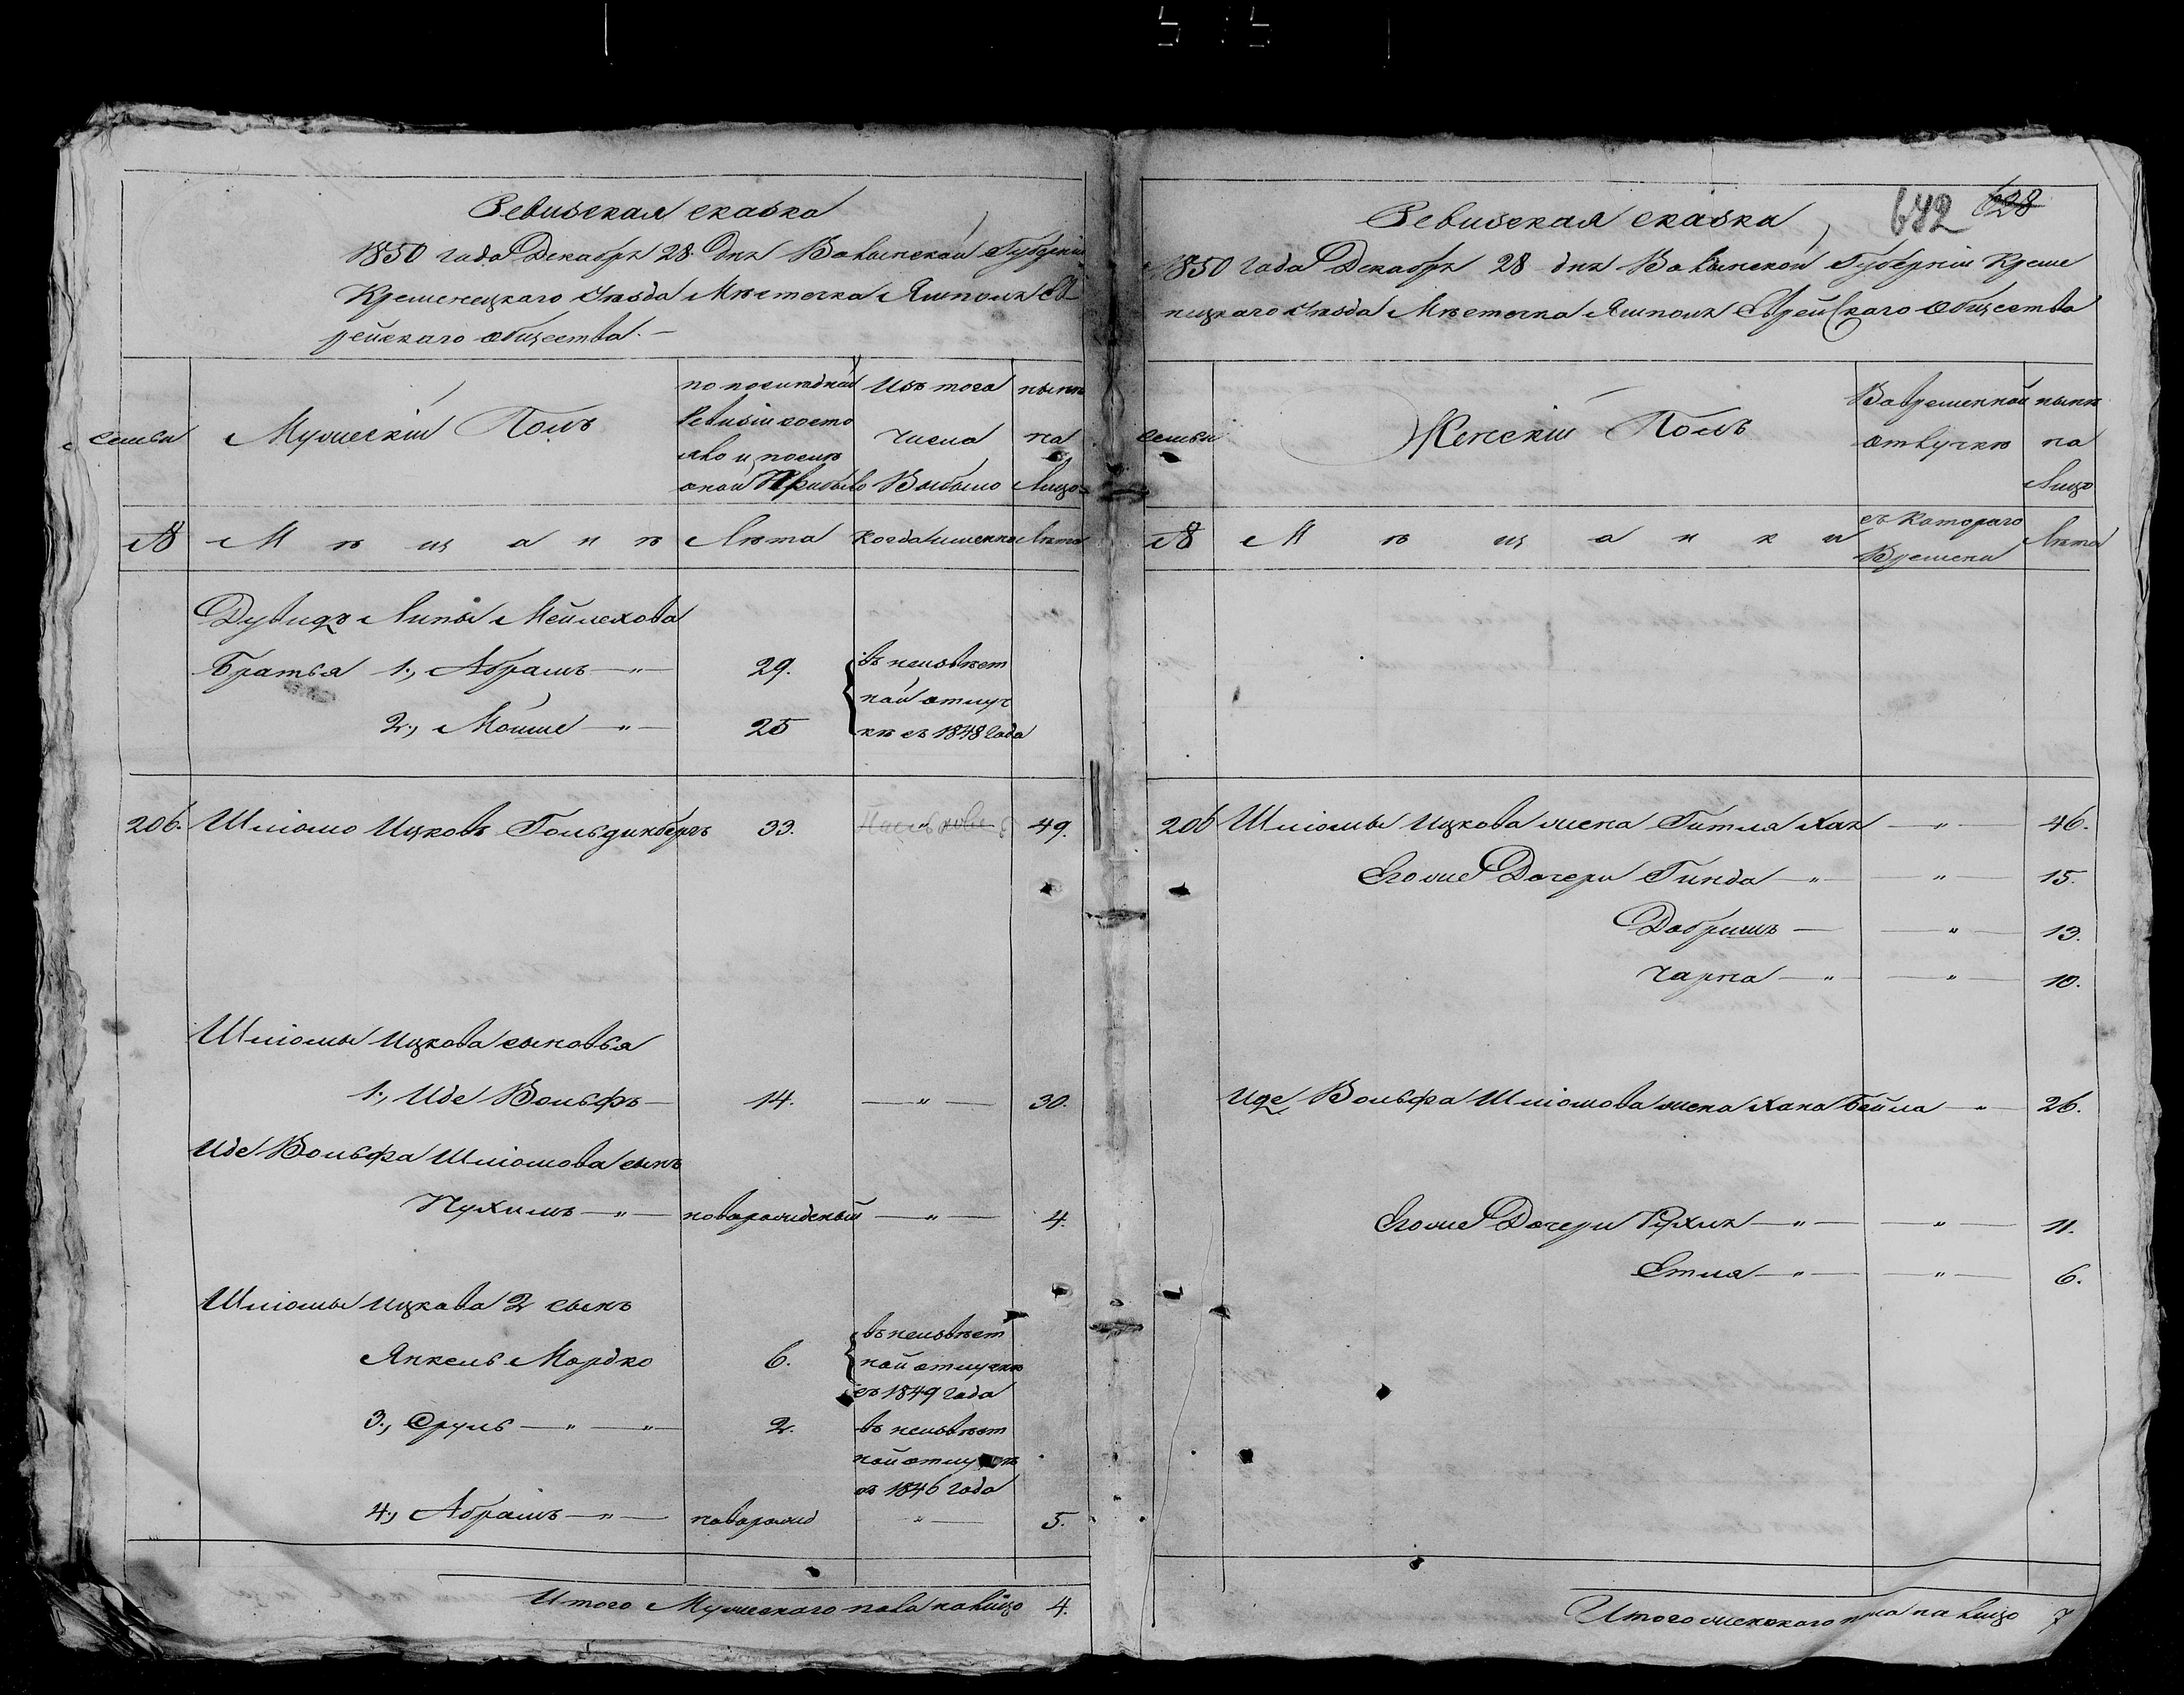 Ревизская сказка
1850 года Декабря 28 дня Волынской Губерніи
Кременецкаго Уѣзда Мѣстечка Ямполя Ев
рейскаго Общества.
семьи
Мужескій Полъ
по послѣдней
Ревизіи состо
яло и послѣ
оной Прибыло
Изъ того
числа
Выбыло
нынѣ
на
Лицо
№
Мѣщанѣ
Лѣта
Когда именно
Лѣта
Дувидъ Липы Мейлехова
Братья 1., Абрамъ — " — 29.
2., Мошие — " — 25
въ неизвѣст
ной отлуч
кѣ съ 1848 года
206. Шлiомо Ицковъ Гольдинбергъ 33. 49.
Шлiомы Ицкова сыновья
1., Иде Вольфъ — 14. — " — 30.
Иде Вольфа Шлiомова сынъ
Нухимъ — " — новорожденый — " — 4.
Шлiомы Ицкова 2 сынъ
Янкель Мордко 6.
въ неизвѣст
ной отлучкѣ
съ 1849 года
3., Сруль — " — " — 2.
въ неизвѣст
ной отлучкѣ
съ 1846 года
4., Абрамъ — " — наворожд " — 5.
Итого Мужескаго пола налицо 4.
642 628
Ревизская сказка
1850 года Декабря 28 дня Волынской Губерніи Креме
нецкаго Уѣзда Мѣстечка Ямполя Еврейскаго Общества
семьи
Женскій Полъ
Вовременной
отлучкѣ
нынѣ
на
Лицо
№
Мѣщанки
съ Котораго
Времени
Лѣта
206 Шлiомы Ицкова жена Гитля Хая — " — 46.
Егоже Дочери Гинда — " — — " — 15.
Добришъ — — " — 13.
Чарна — " — — " — 10.
Иде Вольфа Шлiомова жена Хана Бейла — " — 26.
Егоже Дочери Рухля — " — — " — 11.
Етля — " — — " — 6.
Итого женскаго пола на лицо 7